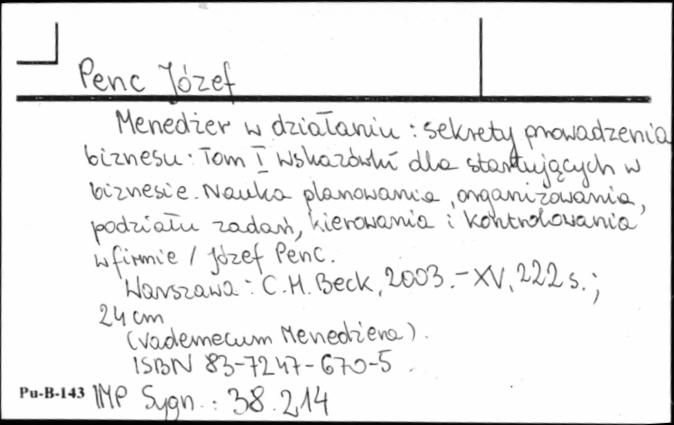 Penc Józef
Menedżer w działaniu : sekrety prowadzenia
biznesu : Tom I Wskazówki dla startujących w
biznesie. Nauka planowania, organizowania,
podziału zadań, kierowania i kontrolowania
w firmie / Józef Penc.
Warszawa : C.H. Beck, 2003. - XV, 222 s. ;
24 cm
(Vademecum Menedżera).
ISBN 83-7247-670-5.
Pu-B-143 IMP Sygn. : 38.214